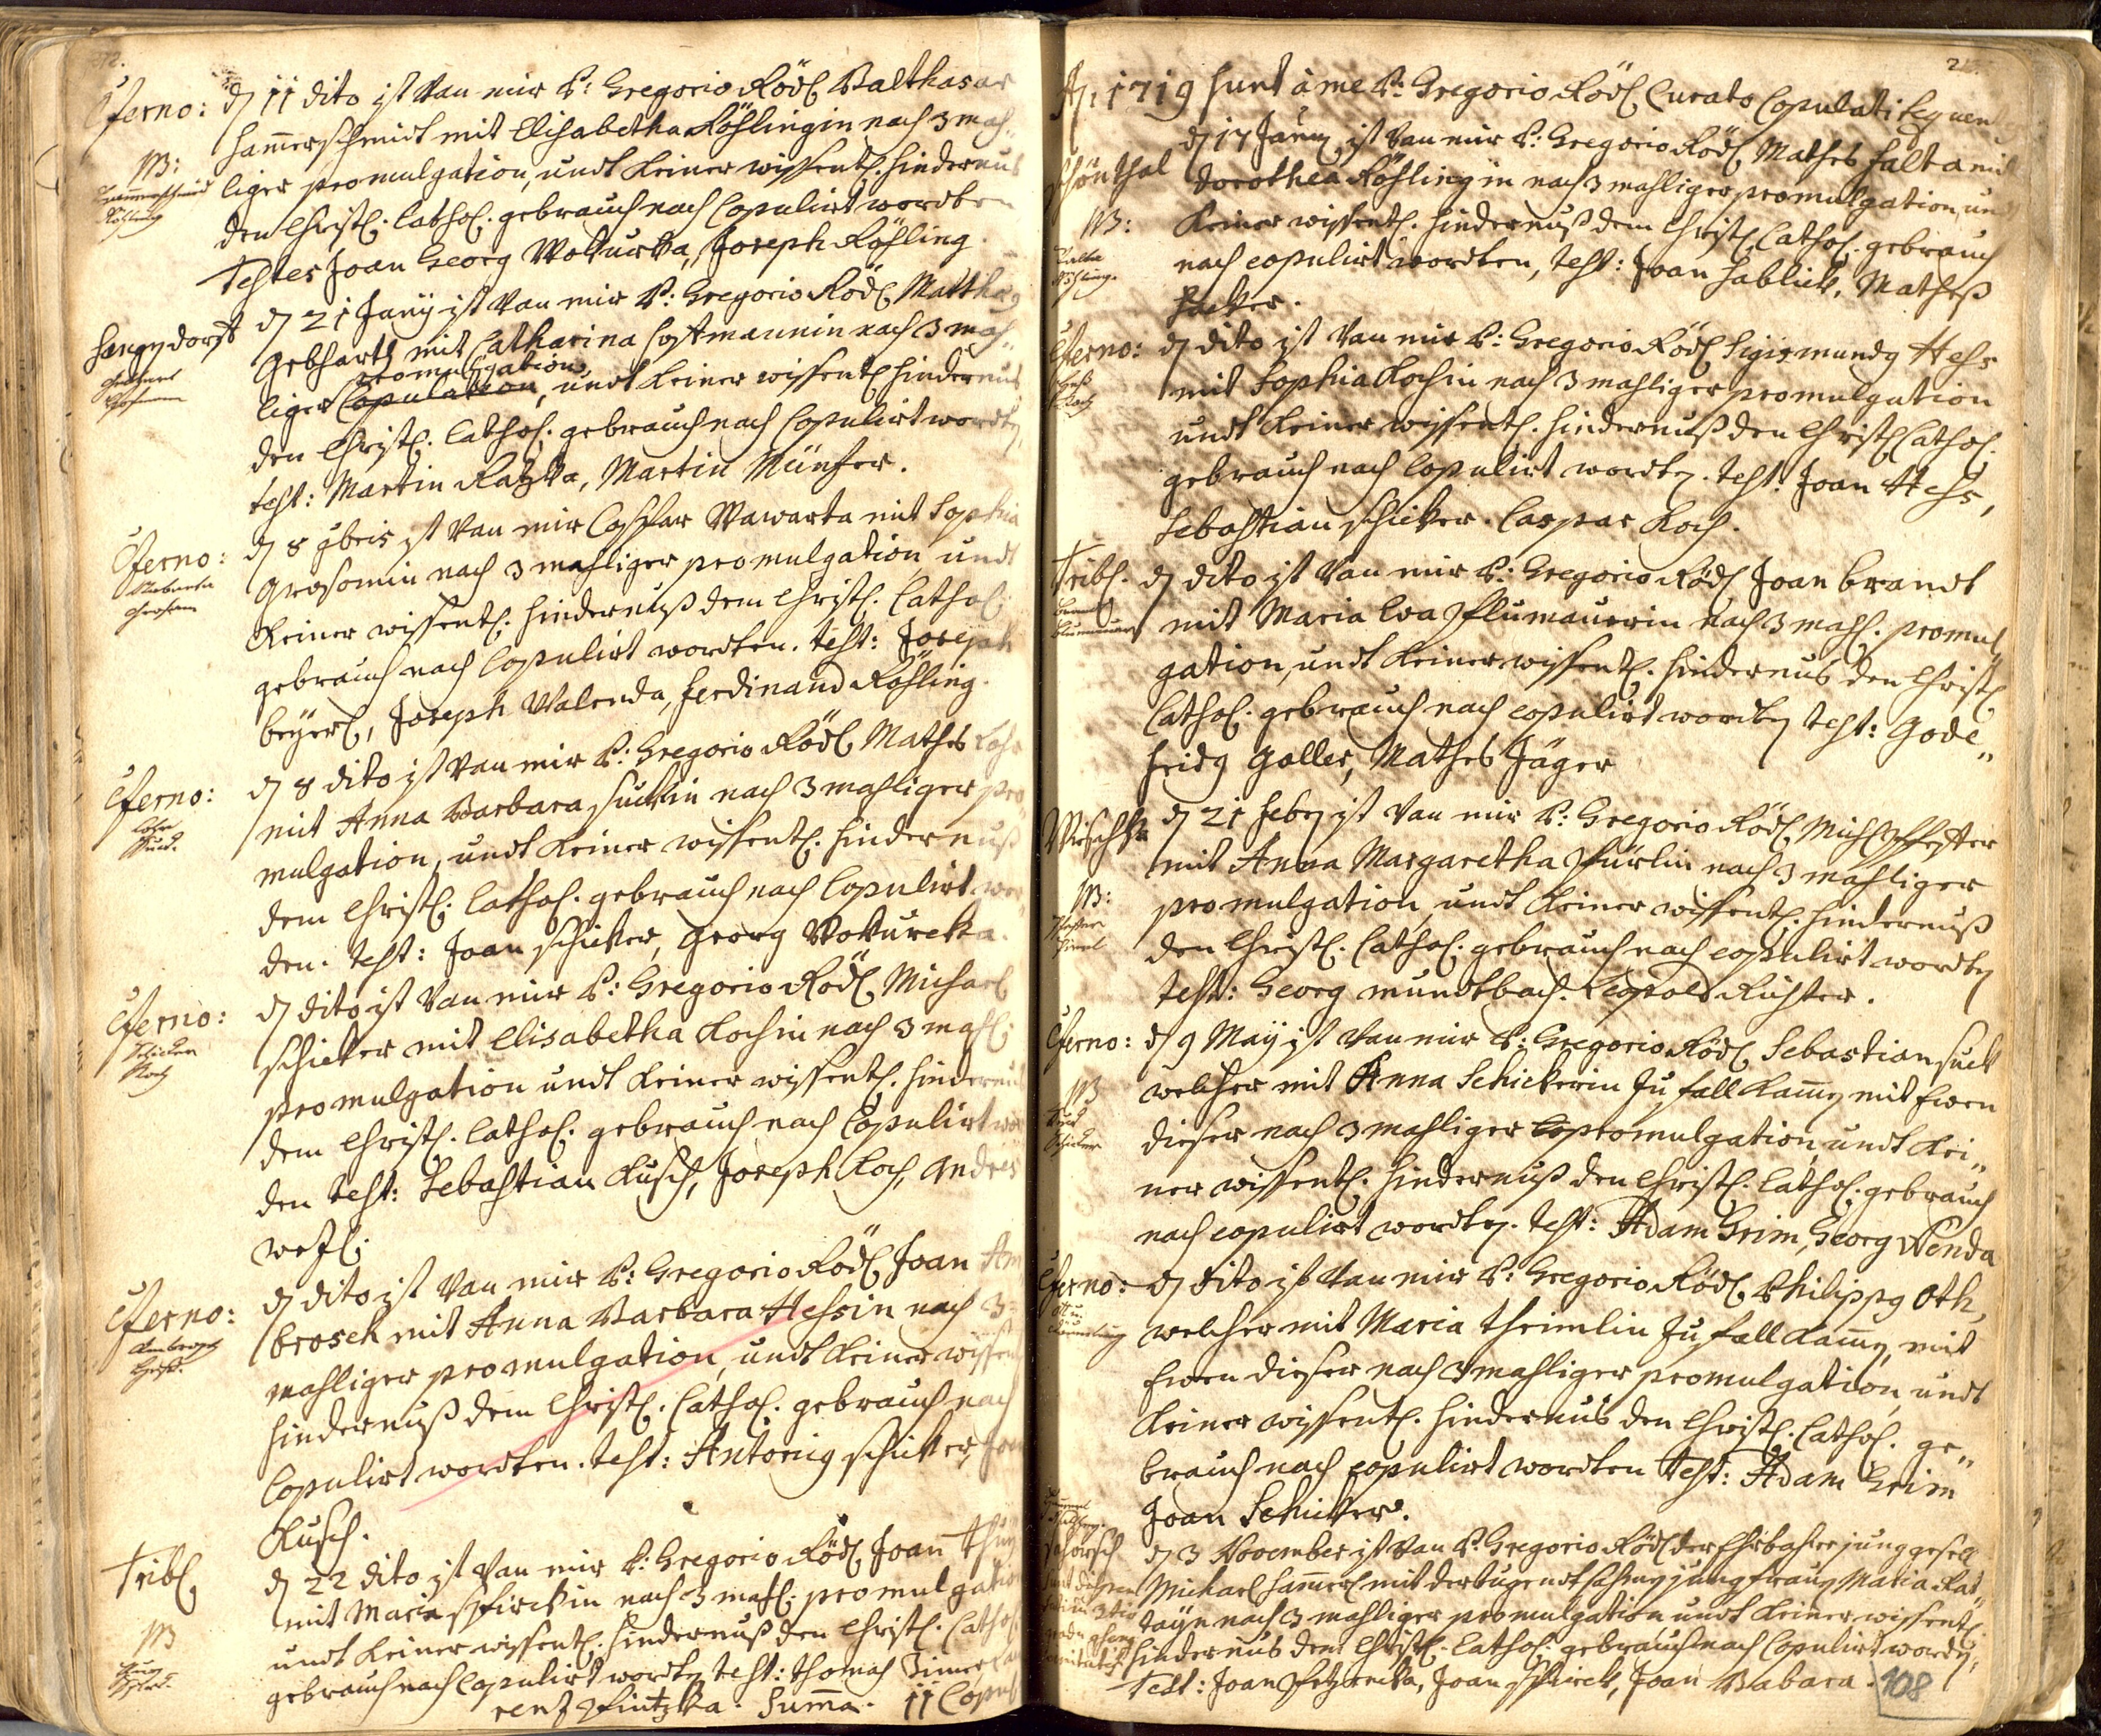 Cferno: dn 11 dito ist Van mir P: Gregorio Rödl Balthasar
Hamerschmidt mit Elisabetha Röhlingin nach 3 mah„
NB:
liger promulgation, undt Keiner wissentl. hindernus
den Christl. Cathol. gebrauch nach Copulirt wordten
Testes Joan Georg Wokurka, Joseph Röhling.
dn 21 Janij ist Van mir P: Gregorio Rödl Matthæg
Gebhartl mit Catharina Hostmannin nach 3 mah„
promulgation
liger Copulation, undt Keiner wissentl hindernus
den Christl. Cathol. gebrauch nach Copulirt wordtn,
test: Martin Ratzka, Martin Münster.
Cferno: dn 8 9bris ist Van mir Caspar Wawarta mit Sophia
Grosomin nach 3 mahliger promulgation undt
Keiner wissentl: hindernuß dem Christl. Cathol:
gebrauch nach Copulirt wordten. test: Joseph
beÿerl, Joseph Walenda, ferdinand Röhling.
Cferno: dn 8 dito ist Van mir P: Gregorio Rödl Mathes Lohr
Lohr
Suck.
mit Anna Barbara Suckin nach 3 mahliger pro
mulgation, undt Keiner wissentl. hindernuß
dem Christl. Cathol. gebrauch nach Copulirt wor
den. test: Joan schicker, Georg Wokureka.
Cferno: dn dito ist Van mir P: Gregorio Rödl Michael
Schicker
Koch
schicker mit Elisabetha Kochin nach 3 mahl:
promulgation undt Keiner wissentl. hindernu
dem Christl. Cathol. gebrauch nach Copulirt wor
den test: Sebastian Kusch, Joseph Koch, Andres
wezl:
Cferno: dn dito ist Van mir P: Gregorio Rödl Joan Am
Ambrosch
Heß.
brosch mit Anna Barbara Hessin nach 3
mahliger promulgation, undt Keiner wissen
hindernuß dem Christl. Cathol. gebrauch nach
Copulirt wordten. test: Antonig schicker, Joan
Kusch.
Tribl dn 22 dito ist Van mir P: Gregorio Rödl Joan
NB
mit Maria spirckin nach 3 mahl: promulgatio
undt Keiner wissentl. hindernuß den Christl. Cathol
gebrauch nach Copulirt wordtn test: thomas
renz Pfintzka. Suma. 11 Copul
Ao: 1719 sunt à me P: Gregorio Rödl Curato Copulati sequen
Schönthal dn 17 Januar ist Van mir P: Gregorio Rödl Mathes falta mit
dorothea Röhlingin nach 3 mahliger promulgation, und
NB: Keiner wissentl. hindernuß dem Christl. Cathol. gebrauch
nach copulirt wordten, test: Joan Hablick, Matheß
Cferno: dn dito ist Van mir P: Gregorio Rödl Sigismundg Hess
Heß
Koch
mit Sophia Kochin nach 3 mahliger promulgation
undt Keiner wissentl. hindernuß den Christl Cathol.
gebrauch nach Copulirt wordtn. test: Joan Hess,
Sebastian schicker. Caspar Koch.
Tribl. dn dito ist Van mir P: Gregorio Rödl Joan brandt
mit Maria Eva Pflumauerin nach 3 mahl. promul„
gation, undt Keiner wissentl. hindernus den Christl
Cathol. gebrauch nach copulirt wordtn test: Gode„
fridg Goller, Mathes Jäger
dn 21 febr ist Van mir P: Gregorio Rödl Michl Pfester
mit Anna Margaretha Pfürlin nach 3 mahliger
NB:
promulgation, undt Keiner wissentl. hindernuß
den Christl. Cathol. gebrauch nach copulirt wordtn
test: Georg mundtbach. Leopold Richter.
Cferno: dn 9 Maÿ ist Van mir P: Gregorio Rödl Sebastian suck
NB
Suck
Schicker
welcher mit Anna Schickerin zu fall kamn mit Ewen
dieser nach 3 mahliger promulgation undt Kei„
ner wissentl. hindernuß den Christl. Cathol. gebrauch
nach copulirt wordtn. test: Adam Grim, Georg Wenda
Cferno: dn dito ist Van mir P: Gregorio Rödl Philippg Oth,
welcher mit Maria theimlin zu fall kamn, mit
Ewen dieser nach 3 mahliger promulgation, undt
Keiner wissentl. hindernus den Christl. Cathol. ge„
brauch nach copulirt wordten test: Adam Grim
Joan Schicker.
dn 3 November ist Van P: Gregorio Rödl der Ehrbahre junggesell
Michael Hamerl mit der tugendtsahmen jungfraun Maria Rat„
taÿn nach 3 mahliger promulgation undt Keiner wissentl.
hindernus dem Christl. Cathol: gebrauch nach Copulirt wordtn,
Test: Joan Petzrenka, Joan Spirck, Joan Babara.
108